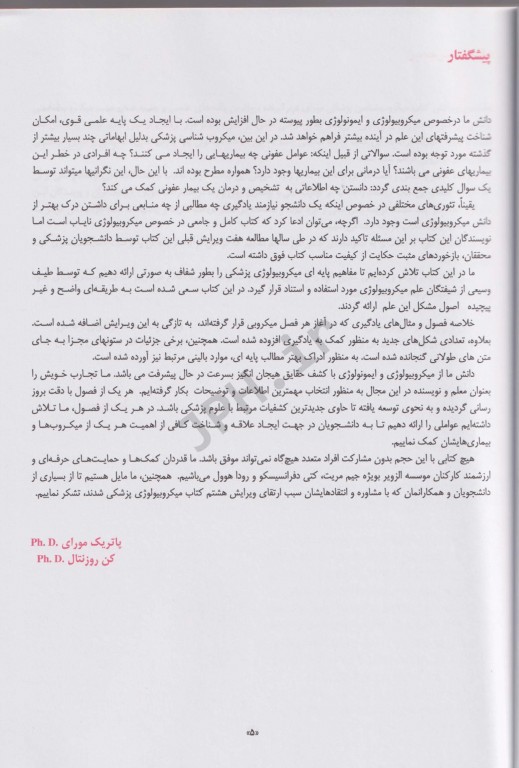 پیشگفتار
دانش ما درخصوص میکروبیولوژی و ایمونولوژی بطور پیوسته در حال افزایش بوده است. بـا ایجـاد یـک پایـه علمـی قـوی، امکـان
شناخت پیشرفتهای این علم در آینده بیشتر فراهم خواهد شد. در این بین، میکروب شناسی پزشکی بدلیل ابهاماتی چند بسیار بیشتر از
گذشته مورد توجه بوده است. سوالاتی از قبیل اینکه: عوامل عفونی چه بیماریهایی را ایجـاد مـی کننـد؟ چـه افـرادی در خطـر ایـن
بیماریهای عفونی می باشند؟ آیا درمانی برای این بیماریها وجود دارد؟ همواره مطرح بوده اند. با این حال، این نگرانیها میتواند توسط
یک سوال کلیدی جمع بندی گردد: دانستن چه اطلاعاتی به تشخیص و درمان یک بیمار عفونی کمک می کند؟
یقیناً، تئوری‌های مختلفی در خصوص اینکه یک دانشجو نیازمند یادگیری چه مطالبی از چه منـابعی بـرای داشـتن درک بهتـر از
دانش میکروبیولوژی است وجود دارد. اگرچه، می‌توان ادعا کرد که کتاب کامل و جامعی در خصوص میکروبیولوژی نایـاب اسـت امـا
نویسندگان این کتاب بر این مسئله تاکید دارند که در طی سالها مطالعه هفت ویرایش قبلی این کتاب توسـط دانشـجویان پزشـکی و
محققان، بازخوردهای مثبت حکایت از کیفیت مناسب کتاب فوق داشته است.
ما در این کتاب تلاش کرده‌ایم تا مفاهیم پایه ای میکروبیولوژی پزشکی را بطور شفاف به صورتی ارائه دهیم کـه توسـط طیـف
وسیعی از شیفتگان علم میکروبیولوژی مورد استفاده و استناد قرار گیرد. در این کتاب سعی شده است بـه طریقـه‌ای واضـح و غیـر
پیچیده اصول مشکل این علم ارائه گردند.
خلاصه فصول و مثال‌های یادگیری که در آغاز هر فصل میکروبی قرار گرفته‌اند، به تازگی به این ویـرایش اضـافه شـده اسـت.
بعلاوه، تعدادی شکل‌های جدید به منظور کمک به یادگیری افزوده شده است. همچنین، برخی جزئیات در ستونهای مجـزا بـه جـای
متن های طولانی گنجانده شده است. به منظور ادراک بهتر مطالب پایه ای، موارد بالینی مرتبط نیز آورده شده است.
دانش ما از میکروبیولوژی و ایمونولوژی با کشف حقایق هیجان انگیز بسرعت در حال پیشرفت می باشد. مـا تجـارب خـویش را
بعنوان معلم و نویسنده در این مجال به منظور انتخاب مهمترین اطلاعات و توضیحات بکار گرفته‌ایم. هر یک از فصول با دقت بروز
رسانی گردیده و به نحوی توسعه یافته تا حاوی جدیدترین کشفیات مرتبط با علوم پزشکی باشـد. در هـر یـک از فصـول، مـا تـلاش
داشته‌ایم عواملی را ارائه دهیم تـا بـه دانشـجویان در جهـت ایجـاد علاقـه و شـناخت کـافی از اهمیـت هـر یـک از میکـروب‌هـا و
بیماری‌هایشان کمک نماییم.
هیچ کتابی با این حجم بدون مشارکت افراد متعدد هیچ‌گاه نمی‌تواند موفق باشد. ما قدردان کمک‌هـا و حمایـت‌هـای حرفـه‌ای و
ارزشمند کارکنان موسسه الزویر بویژه جیم مریت، کتی دفرانسیسکو و رودا هوول می‌باشیم. همچنین، ما مایل هستیم تا از بسیاری از
دانشجویان و همکارانمان که با مشاوره و انتقادهایشان سبب ارتقای ویرایش هشتم کتاب میکروبیولوژی پزشکی شدند، تشکر نماییم.
پاتریک مورای .Ph. D
کن روزنتال .Ph. D
JPH.ir
«۵»